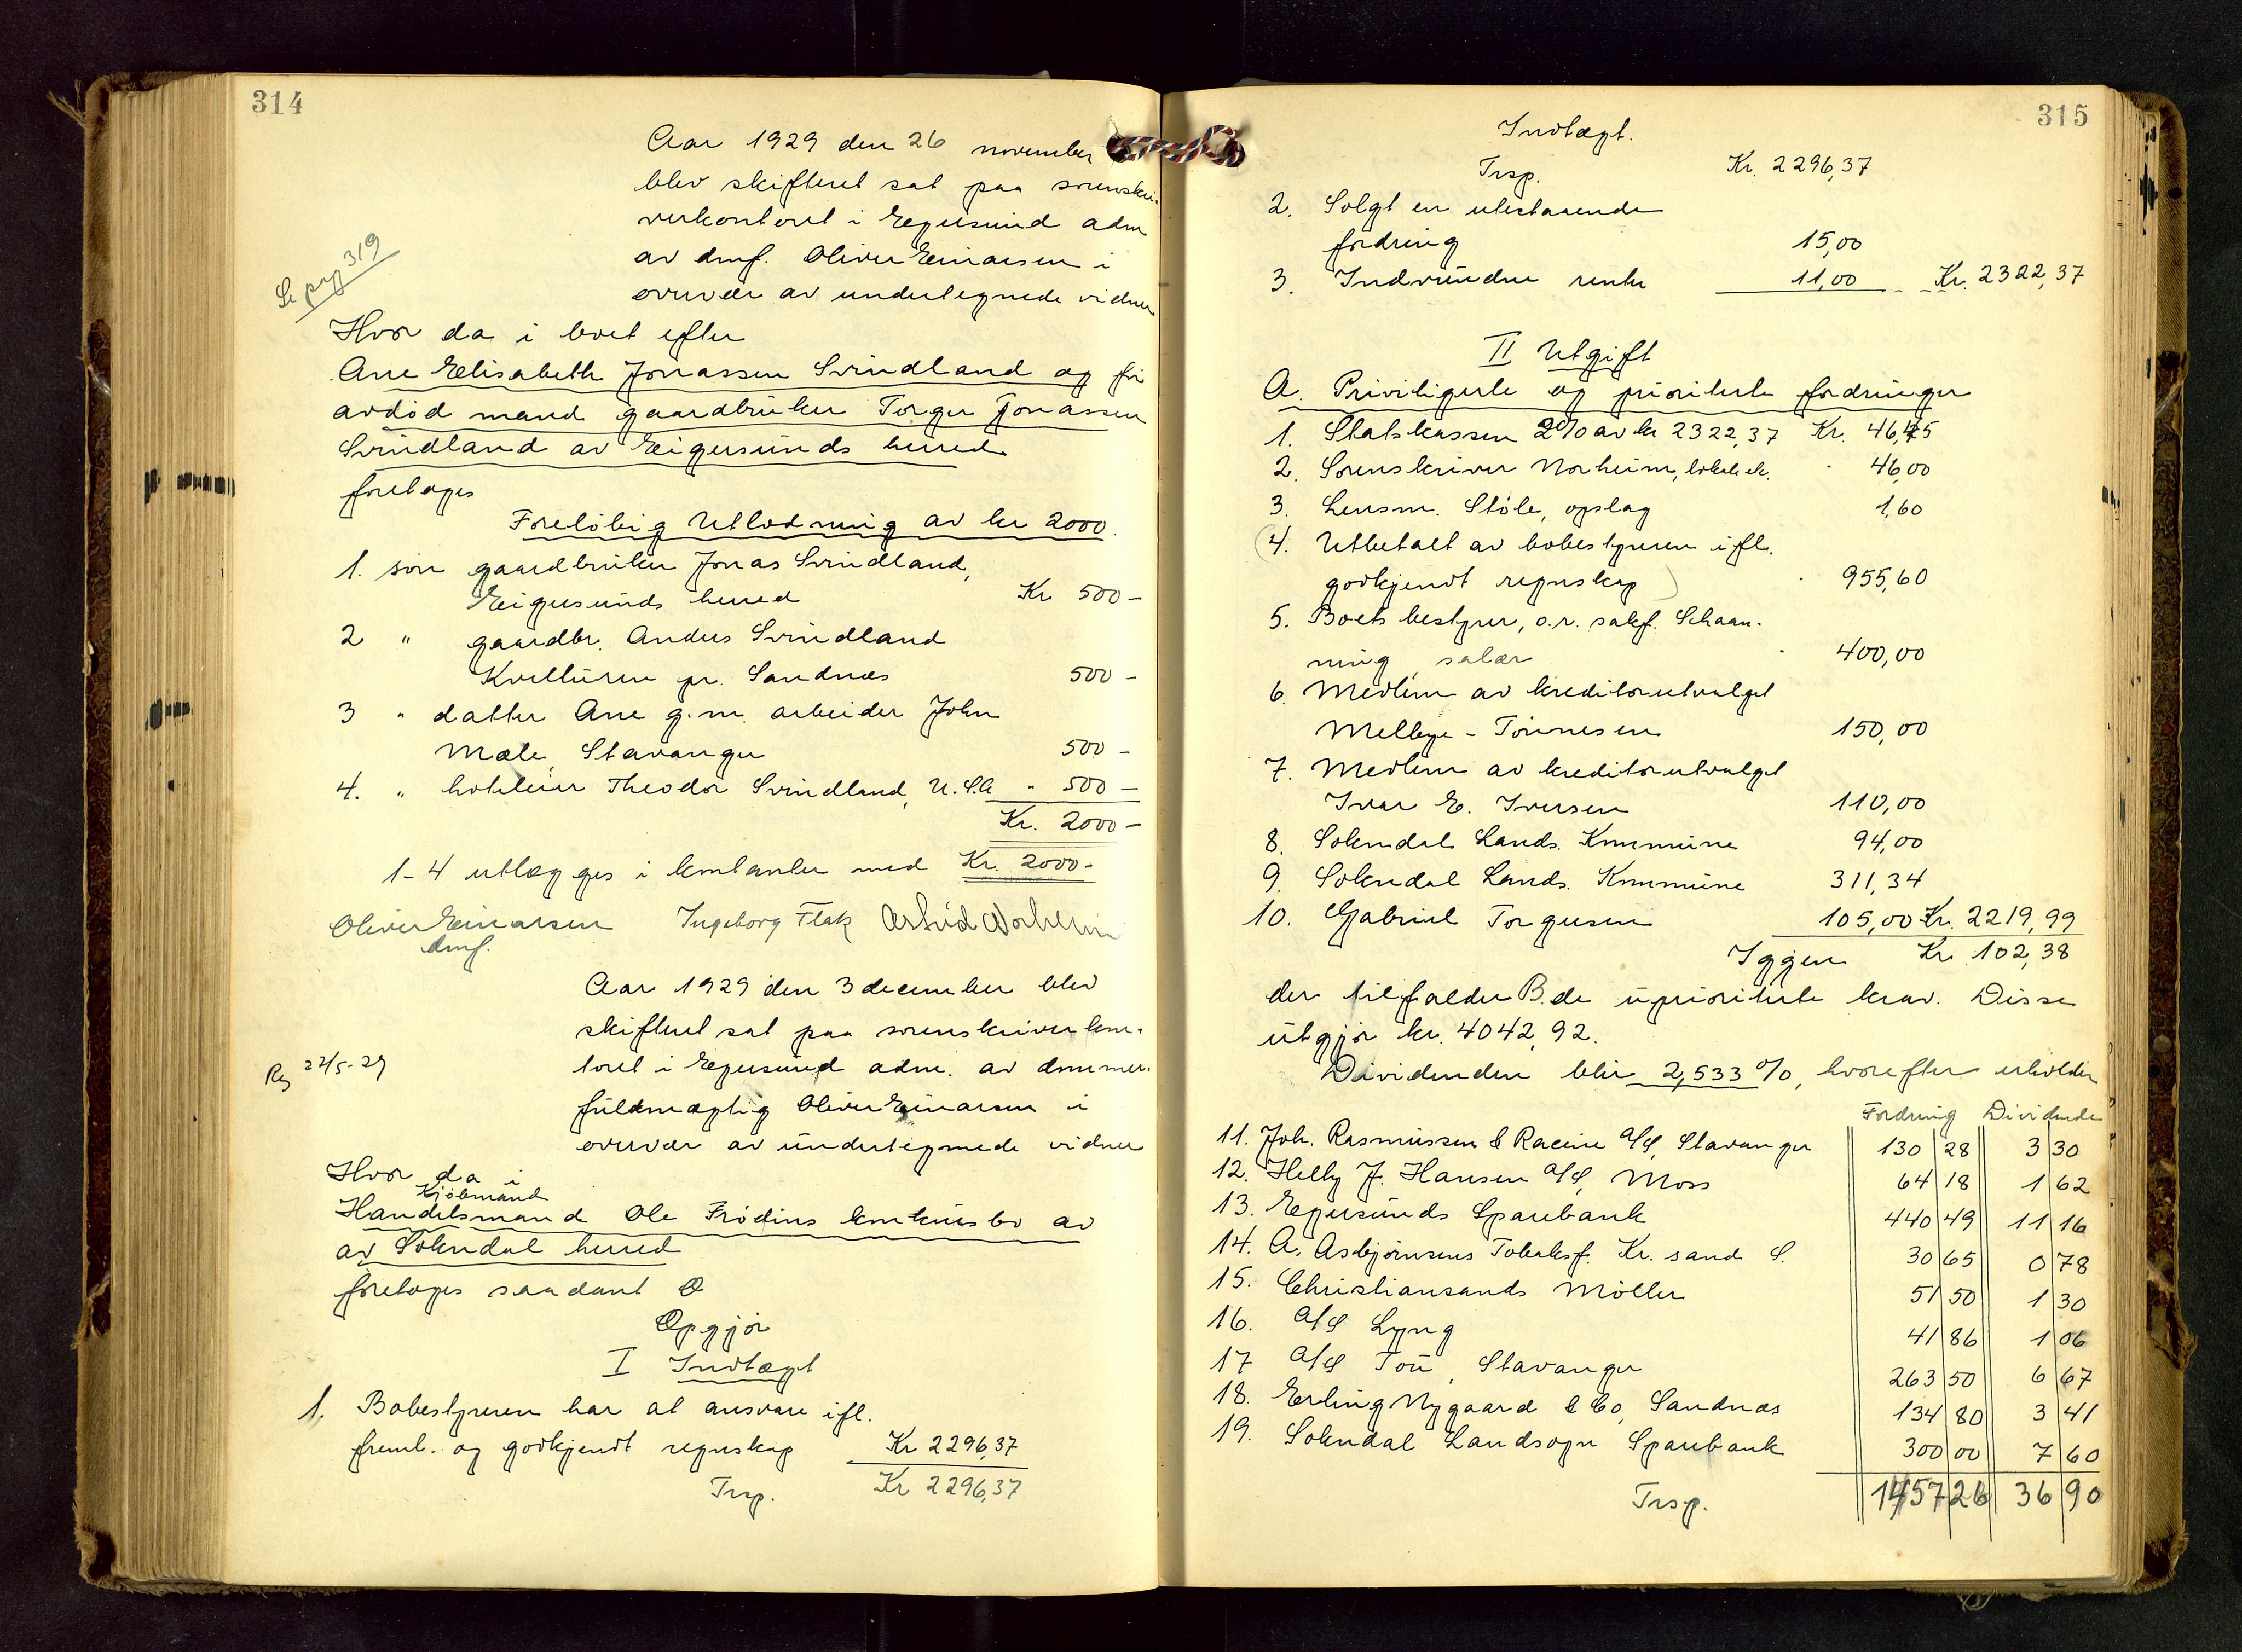 314
Aar 1929 den 26 november
blev skifteret sat paa sorenskri-
verkontoret i Egersund adm
av dmf. Oliver Einarsen i
overvær av undertegnede vidner
Se pag 319
Hvor da i boet efter
Ane Elisabeth Jonassen Svindland og for
avdöd mand gaardbruker Torger Jonassen
Svindland av Eigersunds herred
foretoges
Foreløbig Utlodning av kr 2000.
1. sön gaardbruker Jonas Svindland,
Eigersunds herred Kr 500 -
2 " gaardbr. Anders Svindland
Kvelluren pr. Sandnæs 500 -
3 " datter Ane g.m. arbeider John
Mæle, Stavanger 500 -
4. " hoteleier Theodor Svindland, U.S.A " 500 -
Kr. 2000 -
1-4 utlægges i kontanter med Kr. 2000 -
Oliver Einarsen Ingeborg Flak Astrid Norheim
dmf.
Aar 1929 den 3 december blev
skifteret sat paa sorenskriverkon-
toret i Egersund adm. av dommer-
fuldmægtig Oliver Einarsen i
overvær av undertegnede vidner
Reg 22/5-29
Hvor da i
Kjöbmand
Handelsmand Ole Frödins konkursbo av
av Sokndal herred
foretoges saadant O
Opgjör
I Indtægt
1. Bobestyreren har at ansvare ifl.
freml. og godkjendt regnskap Kr 2296,37
Trsp. Kr 2296,37
315
Indtægt.
Trsp. Kr. 2296,37
2. Solgt en utestaaende
fordring 15,00
3. Indvundne renter 11,00 Kr. 2322,37
II Utgift
A. Priviligerte og prioriterte fordringer
1. Statskassen 2% av kr 2322,37 Kr. 46,45
2. Sorenskriver Norheim, lokale etc. " 46,00
3. Lensm. Stöle, opslag 1,60
(4. Utbetalt av bobestyreren ifl.
godkjendt regnskap) " 955,60
5. Boets bestyrer, o.r. sakf. Schaan-
ning, salær " 400,00
6. Medlem av kreditorutvalget
Melbye-Tönnesen 150,00
7. Medlem av kreditorutvalget
Ivar E. Iversen 110,00
8. Sokndal Lands. Kommune 94,00
9. Sokndal Lands. Kommune 311,34
10. Gabriel Torgersen 105,00 Kr. 2219,99
Igjen Kr. 102,38
der tilfalder B. de uprioriterte krav. Disse
utgjör kr. 4042,92.
Dividenden blir 2,533 %, hvorefter erholder
Fordring Dividende
11. Joh. Rasmussen & Racine A/S, Stavanger 130 28 3 30
12. Helly J. Hansen A/S, Moss 64 18 1 62
13. Egersunds Sparebank 440 49 11 16
14. A. Asbjørnsens Tobaksf. Kr.sand S. 30 65 0 78
15. Christianssands Möller 51 50 1 30
16. A/S Lyng 41 86 1 06
17 A/S Tou, Stavanger 263 50 6 67
18. Erling Nygaard & Co, Sandnæs 134 80 3 41
19. Sokndal Landsogn Sparebank 300 00 7 60
Trsp. 1457 26 36 90